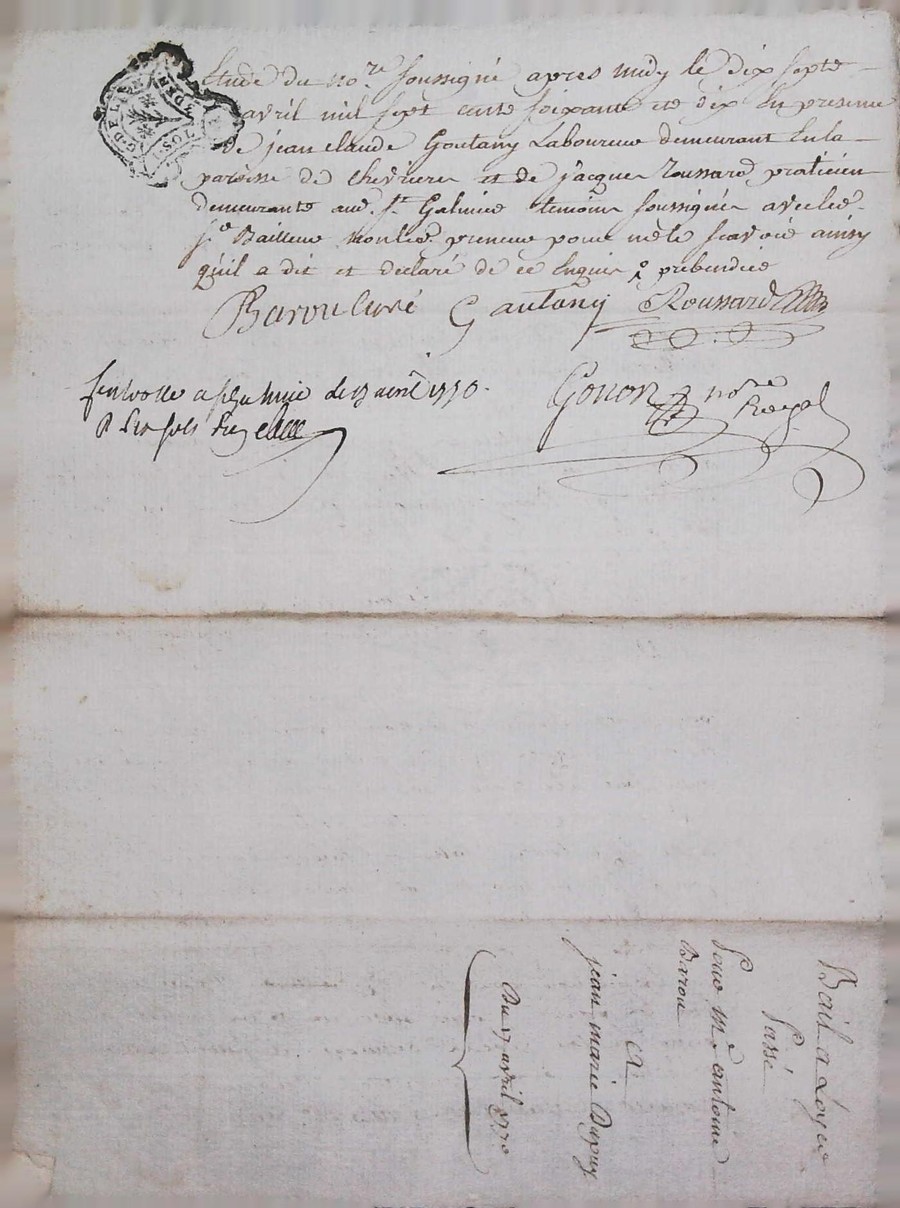 Etude du no.re soussigné apres midy le dix sept
avril mil sept cents soixante et dix en presence
de jean claude Goutany Laboureur demeurant en la
paroisse de chevrieres et de jacques Roussard praticien
demeurants aud. St. Galmier temoins soussignés avec led.
sr. Bailleur non led. preneur pour ne le scavoir ainsy
qu'il a dit et declaré de ce enquis
Barou curé Gautany Roussard
Gonon no.re Royal
a st galmier le avril 1770
Bail a Loyer
Passé
Par Mre antoine
Barou
A
jean marie Dupuy
Du 17 avril 1770